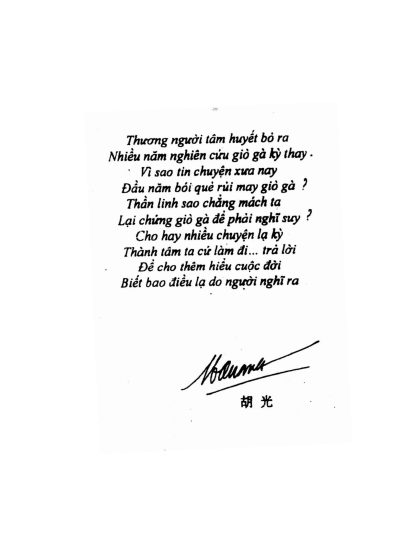 Thương người tâm huyết bỏ ra
Nhiều năm nghiên cứu giò gà kỳ thay.
Vì sao tin chuyện xưa nay
Đầu năm bói quẻ rủi may giò gà ?
Thần linh sao chẳng mách ta
Lại chứng giò gà để phải nghĩ suy ?
Cho hay nhiều chuyện lạ kỳ
Thành tâm ta cứ làm đi... trả lời
Để cho thêm hiểu cuộc đời
Biết bao điều lạ do người nghĩ ra
胡 光